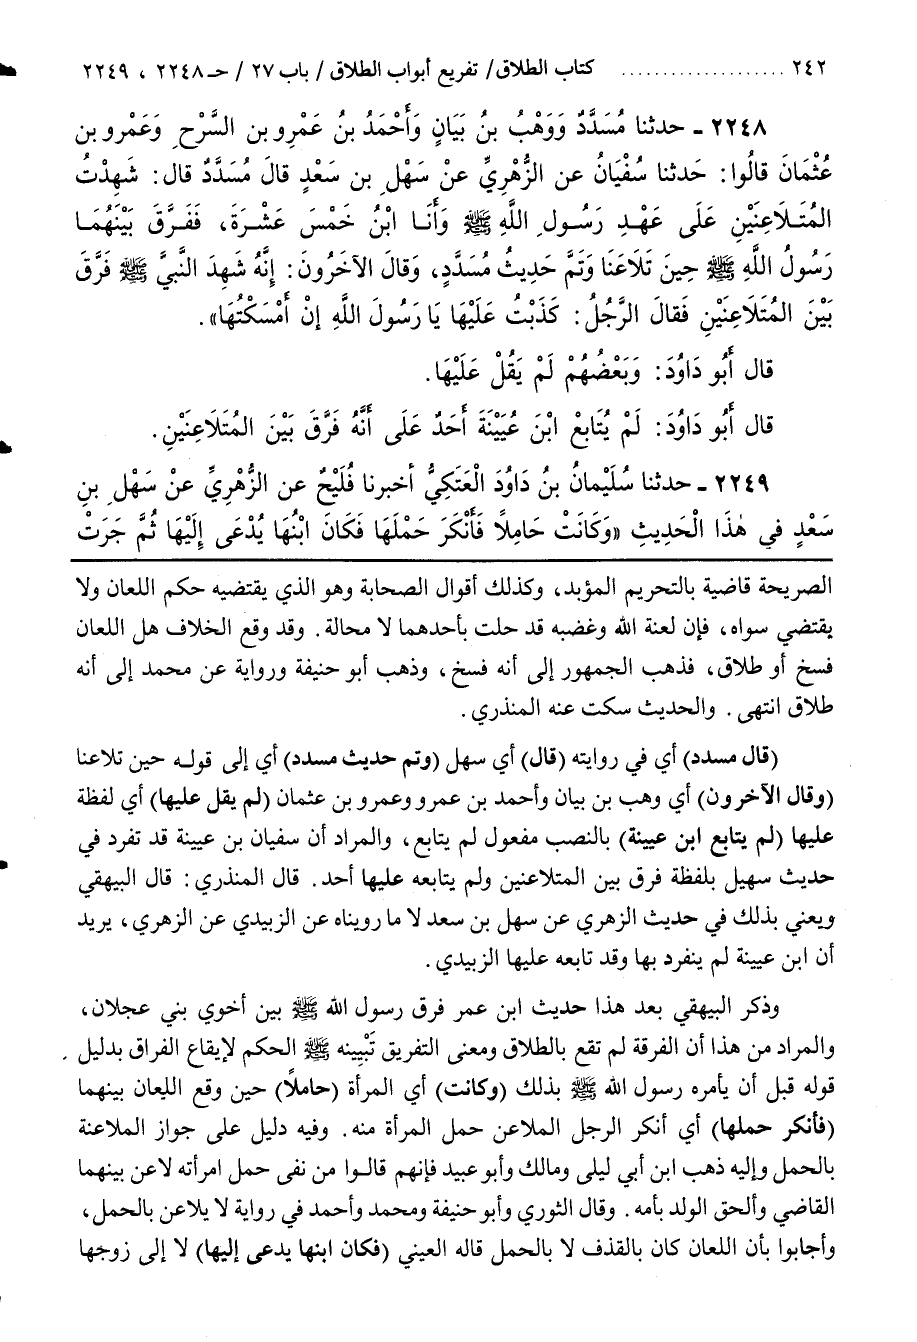 ٢٤٢ .................... كتاب الطلاق/ تفريع أبواب الطلاق/ باب ٢٧ / حـ ٢٢٤٨ ، ٢٢٤٩
٢٢٤٨ ـ حدثنا مُسَدَّدٌ وَوَهْبُ بنُ بَيَانٍ وَأَحْمَدُ بنُ عَمْرِو بن السَّرْحِ وَعَمْرو بن
عُثْمَانَ قالُوا: حَدثنا سُفْيَانُ عن الزُّهْرِيِّ عنْ سَهْلِ بن سَعْدٍ قالَ مُسَدَّدٌ قال: شَهِدْتُ
المُتَلَاعِنَيْنِ عَلَى عَهْدِ رَسُولِ اللَّهِ ﷺ وَأَنَا ابْنُ خَمْسَ عَشْرَةَ، فَفَرَّقَ بَيْنَهُمَا
رَسُولُ اللَّهِ ﷺ حِينَ تَلَاعَنَا وَتَمَّ حَدِيثُ مُسَدَّدٍ، وَقالَ الآخَرُونَ: إِنَّهُ شَهِدَ النَّبيَّ ﷺ فَرَّقَ
بَيْنَ المُتَلَاعِنَيْنِ فَقالَ الرَّجُلُ: كَذَبْتُ عَلَيْهَا يَا رَسُولَ اللَّهِ إنْ أَمْسَكْتُهَا».
قال أَبُو دَاوُدَ: وَبَعْضُهُمْ لَمْ يَقُلْ عَلَيْهَا.
قال أَبُو دَاوُدَ: لَمْ يُتَابِعْ ابْنَ عُيَيْنَةَ أَحَدٌ عَلَى أَنَّهُ فَرَّقَ بَيْنَ المُتَلَاعِنَيْنِ.
٢٢٤٩ ـ حدثنا سُلَيْمانُ بنُ دَاوُدَ الْعَتَكِيُّ أخبرنا فُلَيْحٌ عن الزُّهْرِيِّ عنْ سَهْلِ بنِ
سَعْدٍ في هٰذَا الْحَدِيثِ «وَكَانَتْ حَامِلًا فَأَنْكَرَ حَمْلَهَا فَكَانَ ابْنُهَا يُدْعَى إِلَيْهَا ثُمَّ جَرَتْ
الصريحة قاضية بالتحريم المؤبد، وكذلك أقوال الصحابة وهو الذي يقتضيه حكم اللعان ولا
يقتضي سواه، فإن لعنة الله وغضبه قد حلت بأحدهما لا محالة. وقد وقع الخلاف هل اللعان
فسخ أو طلاق، فذهب الجمهور إلى أنه فسخ، وذهب أبو حنيفة ورواية عن محمد إلى أنه
طلاق انتهى. والحديث سكت عنه المنذري.
(قال مسدد) أي في روايته (قال) أي سهل (وتم حديث مسدد) أي إلى قوله حين تلاعنا
(وقال الآخرون) أي وهب بن بيان وأحمد بن عمرو وعمرو بن عثمان (لم يقل عليها) أي لفظة
عليها (لم يتابع ابن عيينة) بالنصب مفعول لم يتابع، والمراد أن سفيان بن عيينة قد تفرد في
حديث سهيل بلفظة فرق بين المتلاعنين ولم يتابعه عليها أحد. قال المنذري: قال البيهقي
ويعني بذلك في حديث الزهري عن سهل بن سعد لا ما رويناه عن الزبيدي عن الزهري، يريد
أن ابن عيينة لم ينفرد بها وقد تابعه عليها الزبيدي.
وذكر البيهقي بعد هذا حديث ابن عمر فرق رسول الله ﷺ بين أخوي بني عجلان،
والمراد من هذا أن الفرقة لم تقع بالطلاق ومعنى التفريق تَبْيِينه ﷺ الحكم لإيقاع الفراق بدليل
قوله قبل أن يأمره رسول الله ﷺ بذلك (وكانت) أي المرأة (حاملًا) حين وقع اللعان بينهما
(فأنكر حملها) أي أنكر الرجل الملاعن حمل المرأة منه. وفيه دليل على جواز الملاعنة
بالحمل وإليه ذهب ابن أبي ليلى ومالك وأبو عبيد فإنهم قالوا من نفى حمل امرأته لاعن بينهما
القاضي وألحق الولد بأمه. وقال الثوري وأبو حنيفة ومحمد وأحمد في رواية لا يلاعن بالحمل،
وأجابوا بأن اللعان كان بالقذف لا بالحمل قاله العيني (فكان ابنها يدعى إليها) لا إلى زوجها